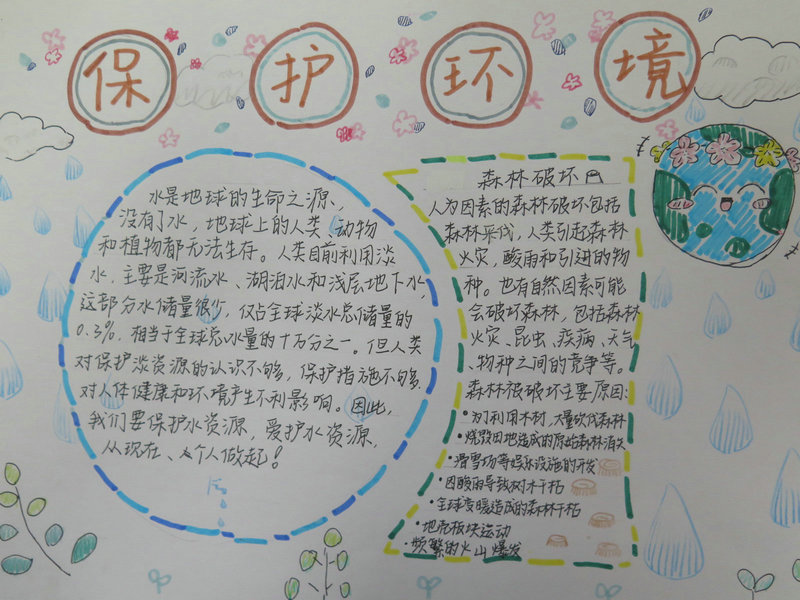 保护环境
水是地球的生命之源、
没有了水，地球上的人类、动物
和植物都无法生存。人类目前利用淡
水，主要是河流水、湖泊水和浅层地下水，
这部分水储量很少，仅占全球淡水总储量的
0.3%，相当于全球总水量的十万分之一。但人类
对保护淡资源的认识不够，保护措施不够，
对人体健康和环境产生不利影响。因此，
我们要保护水资源，爱护水资源，
从现在、个人做起！
森林破坏
人为因素的森林破坏包括
森林采伐，人类引起森林
火灾，酸雨和引进的物
种。也有自然因素可能
会破坏森林，包括森林
火灾、昆虫、疾病、天气
、物种之间的竞争等。
森林被破坏主要原因：
•为了利用木材，大量砍伐森林
•烧毁田地造成的原始森林消失
•滑雪场等娱乐设施的开发
•因酸雨导致树木干枯
•全球变暖造成的森林干枯
•地壳板块运动
•频繁的火山爆发